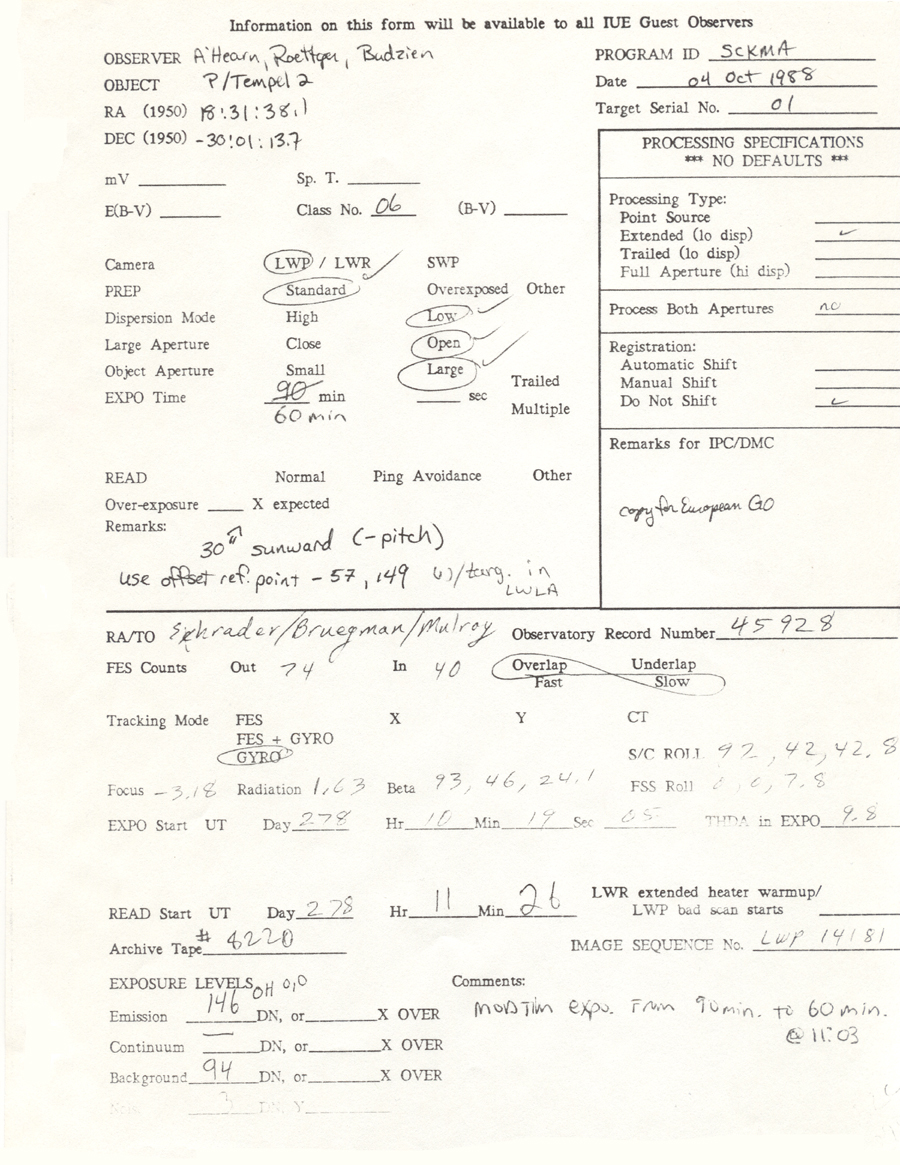 Information on this form will be available to all IUE Guest Observers
OBSERVER A'Hearn, Roettger, Budzien
PROGRAM ID SCKMA
OBJECT P/Tempel 2
Date 04 Oct 1988
RA (1950) 18:31:38.1
Target Serial No. 01
DEC (1950) -30:01:13.7
PROCESSING SPECIFICATIONS
*** NO DEFAULTS ***
mV Sp. T.
E(B-V) Class No. 06 (B-V)
Processing Type:
Point Source
Extended (lo disp)
Trailed (lo disp)
Full Aperture (hi disp)
Process Both Apertures no
Registration:
Automatic Shift
Manual Shift
Do Not Shift
Remarks for IPC/DMC
copy for European GO
Camera LWP / LWR SWP
PREP Standard Overexposed Other
Dispersion Mode High Low
Large Aperture Close Open
Object Aperture Small Large
EXPO Time 90 min sec Trailed
60 min Multiple
READ Normal Ping Avoidance Other
Over-exposure X expected
Remarks:
30" sunward (-pitch)
use offset ref. point -57, 149 w/targ. in
LWLA
RA/TO Schrader/Bruegman/Mulroy Observatory Record Number 45928
FES Counts Out 74 In 40 Overlap Underlap
Fast Slow
Tracking Mode FES X Y CT
FES + GYRO
GYRO S/C ROLL 92, 42, 42.8
Focus -3.18 Radiation 1.63 Beta 93, 46, 24.1 FSS Roll 7.8
EXPO Start UT Day 278 Hr 10 Min 19 Sec 05 THDA in EXPO 9.8
LWR extended heater warmup/
READ Start UT Day 278 Hr 11 Min 26 LWP bad scan starts
Archive Tape # IMAGE SEQUENCE No. LWP 14181
EXPOSURE LEVELS OH 0,0 Comments:
Emission 146 DN, or X OVER
Continuum — DN, or X OVER
Background 94 DN, or X OVER
expo. From 90 min. to 60 min.
@ 11:03
3 DN, Y